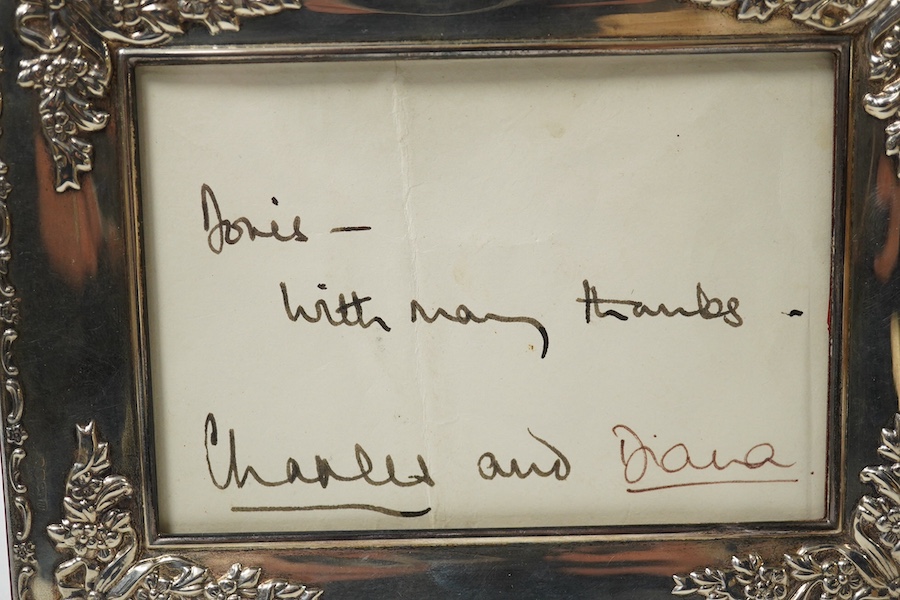 Doris –
With many thanks -
Charles and Diana